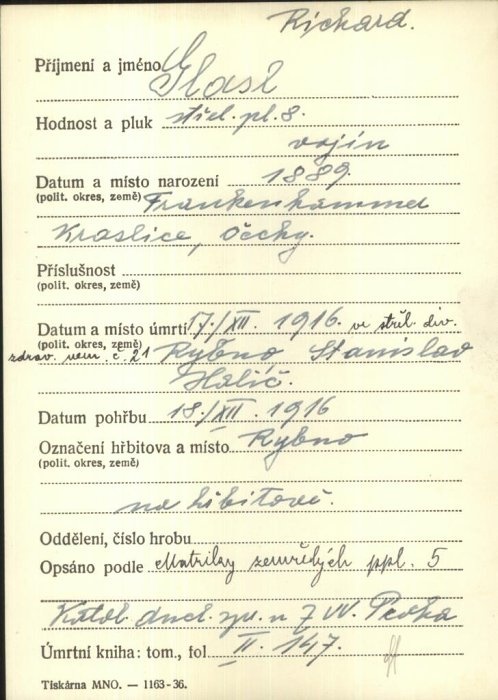 Richard.
Příjmení a jméno Glasl
Hodnost a pluk střel. pl. 8.
vojín
Datum a místo narození 1889.
(polit. okres, země) Frankenhammer
Kraslice, Čechy.
Příslušnost
(polit. okres, země)
Datum a místo úmrtí 17./XII. 1916 ve střel. div.
(polit. okres, země)
zdrav. nem. č. 21 Rybno, Stanislav
Halič.
Datum pohřbu 18./XII. 1916
Označení hřbitova a místo Rybno
(polit. okres, země)
na hřbitově.
Oddělení, číslo hrobu
Opsáno podle Matriky zemřelých ppl. 5
Katol. duch. spr. n
Úmrtní kniha: tom., fol. II. 147.
Tiskárna MNO. — 1163-36.